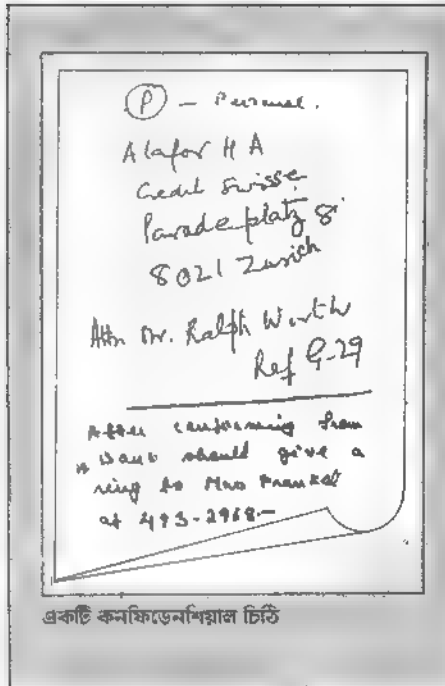 (P) - Personal.
Alafor H A
Credit Suisse
Paradeplatz 8
8021 Zurich
Attn Mr. Ralph Worth
Ref G-29
After confirming from
Bank should give a
ring to Mrs Frankel
at 493-2968-
একটি কনফিডেনশিয়াল চিঠি